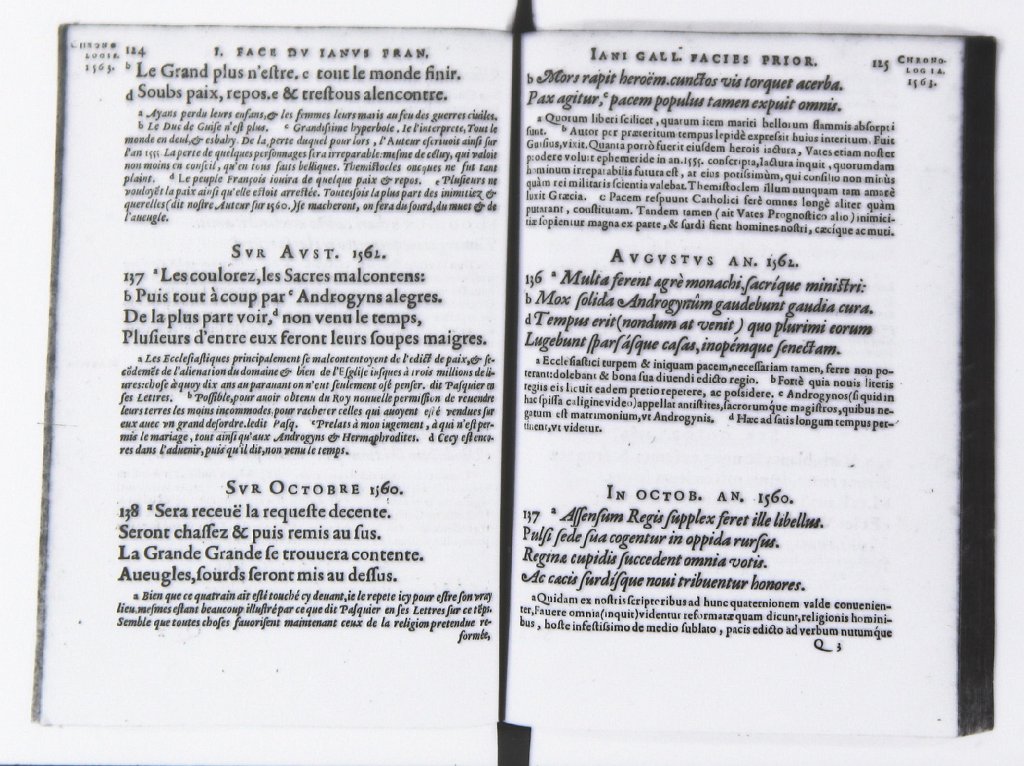 CHRONO
LOGIE.
1563.
124 I. FACE DV IANVS FRAN.
b Le Grand plus n'estre. c tout le monde finir.
d Soubs paix, repos. e & trestous alencontre.
a Ayans perdu leurs enfans, & les femmes leurs maris au feu des guerres ciuiles.
b Le Duc de Guise n'est plus. c Grandissime hyperbole, Ie l'interprete, Tout le
monde en deul, & esbahy. De la, perte duquel pour lors, l'Auteur escriuoit ainsi sur
l'an 1555. La perte de quelques personnages sera irreparable: mesme de celuy, qui valoit
non moins en conseil, qu'en tous faits belliques. Themistocles oncques ne fut tant
plaint. d Le peuple François iouira de quelque paix & repos. e Plusieurs ne
vouloyẽt la paix ainsi qu'elle estoit arrestée. Toutesfois la plus part des inimitiez &
querelles (dit nostre Auteur sur 1560.) se macheront, on fera du sourd, du muet & de
l'aueugle.
SVR AVST. 1562.
137 a Les coulorez, les Sacres malcontens:
b Puis tout à coup par c Androgyns alegres.
De la plus part voir, d non venu le temps,
Plusieurs d'entre eux feront leurs soupes maigres.
a Les Ecclesiastiques principalement se malcontentoyent de l'edict de paix, & se-
cõdemẽt de l'alienation du domaine & bien de l'Esglise iusques à trois millions de li-
ures: chose à quoy dix ans au parauant on n'eut seulement osé penser. dit Pasquier en
ses Lettres. b Possible, pour auoir obtenu du Roy nouuelle permission de reuendre
leurs terres les moins incommodes, pour racheter celles qui auoyent esté vendues sur
eux auec vn grand desordre. ledit Pasq. c Prelats à mon iugement, à qui n'est per-
mis le mariage, tout ainsi qu'aux Androgyns & Hermaphrodites. d Cecy est enco-
res dans l'aduenir, puis qu'il dit, non venu le temps.
SVR OCTOBRE 1560.
138 a Sera receuë la requeste decente.
Seront chassez & puis remis au sus.
La Grande Grande se trouuera contente.
Aueugles, sourds seront mis au dessus.
a Bien que ce quatrain ait esté touché cy deuant, ie le repete icy pour estre son vray
lieu. mesmes estant beaucoup illustré par ce que dit Pasquier en ses Lettres sur ce tẽps.
Semble que toutes choses fauorisent maintenant ceux de la religion pretendue re-
formée,
IANI GALL. FACIES PRIOR. 125
CHRONO-
LOGIA.
1563.
b Mors rapit heroëm. cunctos vis torquet acerba.
Pax agitur, c pacem populus tamen expuit omnis.
a Quorum liberi scilicet, quarum item mariti bellorum flammis absorpti
sunt. b Autor per præteritum tempus lepidè expressit huius interitum. Fuit
Guisius, vixit. Quanta porrò fuerit eiusdem herois iactura, Vates etiam noster
prodere voluit ephemeride in an. 1555. conscripta, Iactura inquit, quorundam
hominum irreparabilis futura est, at eius potissimùm, qui consilio non minùs
quàm rei militaris scientia valebat. Themistoclem illum nunquam tam amarè
luxit Græcia. c Pacem respuunt Catholici ferè omnes longè aliter quàm
putarant, constitutam. Tandem tamen (ait Vates Prognostico alio) inimici-
tiæ sopientur magna ex parte, & surdi fient homines nostri, cæcique ac muti.
AVGVSTVS AN. 1562.
136 a Multa ferent agrè monachi, sacríque ministri:
b Mox solida Androgynûm gaudebunt gaudia cura.
d Tempus erit (nondum at venit) quo plurimi eorum
Lugebunt sparsásque casas, inopémque senectam.
a Ecclesiastici turpem & iniquam pacem, necessariam tamen, ferre non po-
terant: dolebant & bona sua diuendi edicto regio. b Fortè quia nouis literis
regiis eis licuit eadem pretio repetere, ac possidere. c Androgynos (si quid in
hac spissa caligine video) appellat antistites, sacrorumque magistros, quibus ne-
gatum est matrimonium, vt Androgynis. d Hæc ad satis longum tempus per-
tinent, vt videtur.
IN OCTOB. AN. 1560.
137 a Assensum Regis supplex feret ille libellus.
Pulsi sede sua cogentur in oppida rursus.
Reginæ cupidis succedent omnia votis.
Ac cæcis surdisque noui tribuentur honores.
a Quidam ex nostris scriptoribus ad hunc quaternionem valde convenien-
ter, Fauere omnia (inquit) videntur reformatæ quam dicunt, religionis homini-
bus, hoste infestissimo de medio sublato, pacis edicto ad verbum nutumque
Q 3